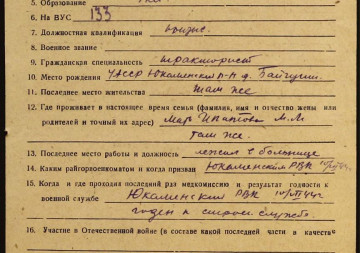 5. Образование
6. На ВУС 133
7. Должностная квалификация
8. Военное звание
9. Гражданская специальность тракторист
10. Место рождения УАССР Юкаменский р-н д. Байгузи
11. Последнее место жительства там же
12. Где проживает в настоящее время семья (фамилия, имя и отчество жены или
родителей и точный их адрес) М.М.
там же.
13. Последнее место работы и должность лежал в больнице
14. Каким райгорвоенкоматом и когда призван Юкаменским РВК
15. Когда и где проходил последний раз медкомиссию и результат годности к
военной службе Юкаменский РВК
годен к строев. службе
16. Участие в Отечественной войне (в составе какой последней части, в качестве